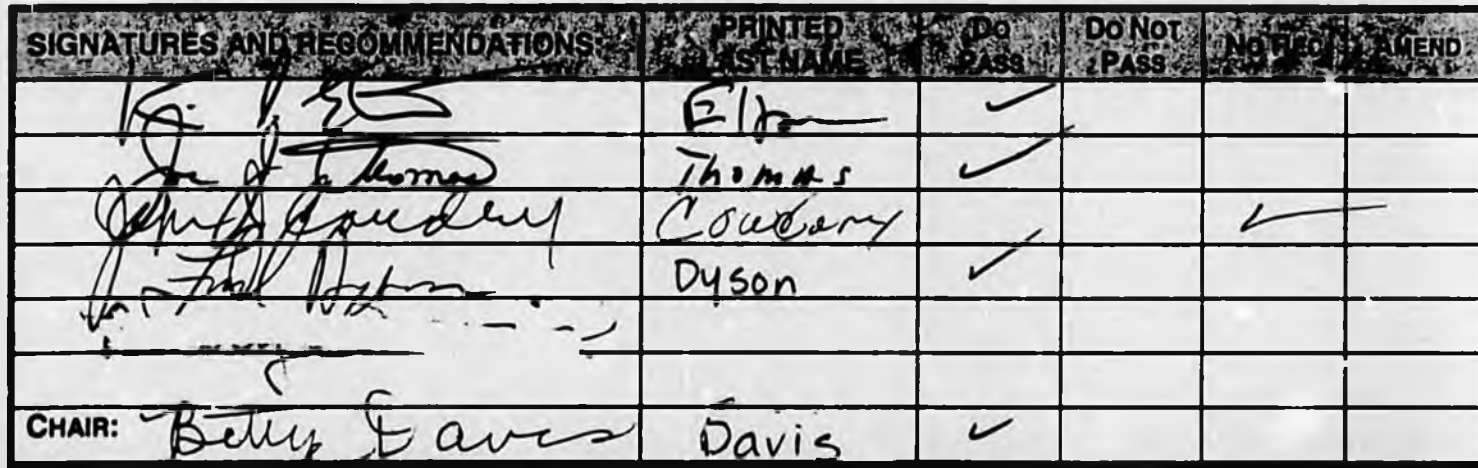 SIGNATURES AND RECOMMENDATIONS: PRINTED LAST NAME DO PASS DO NOT PASS NO REC AMEND
✓
Joe J Thomas Thomas ✓
John J Cowdery Cowdery ✓
Fred Dyson Dyson ✓
CHAIR: Betty Davis Davis ✓